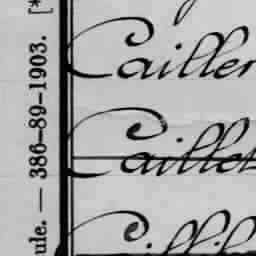 ule. — 386-89-1903. [*
Cailler
Caillet